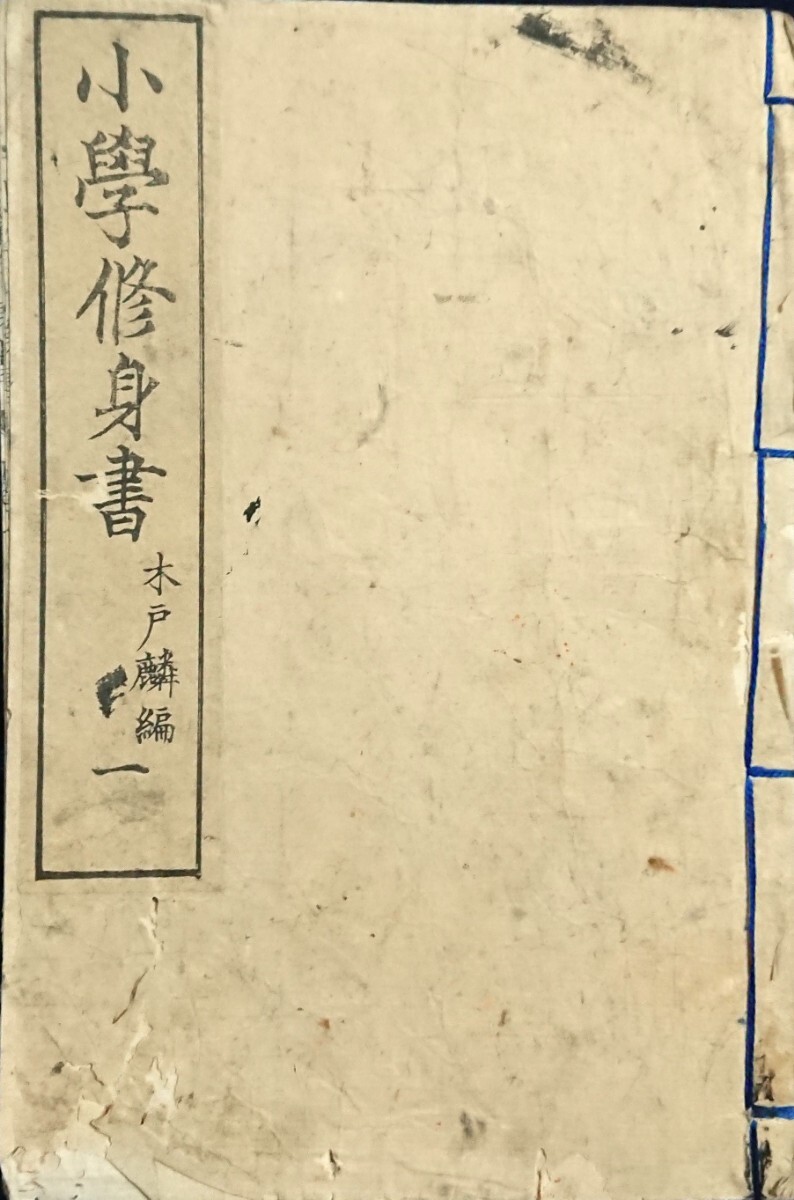 小學修身書
木戸麟編
一